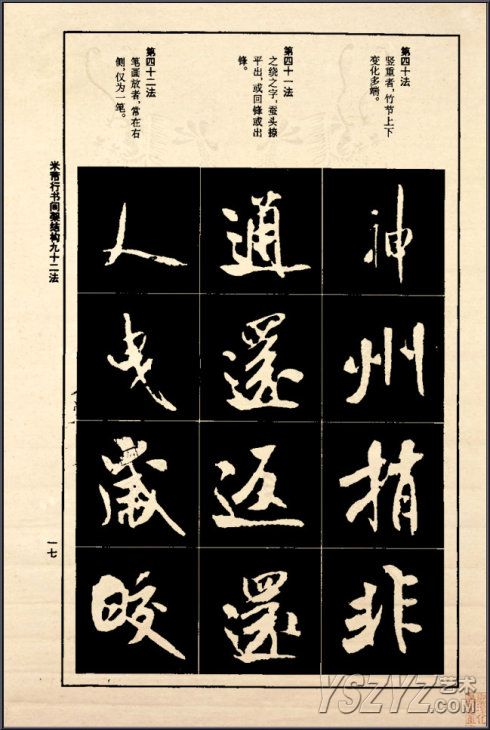 第四十法
竖重者，竹节上下
变化多端。
第四十一法
之绕之字，蚕头撩
平出，或回锋或出
锋。
第四十二法
笔画放者，常在右
侧，仅为一笔。
神州捎非
通还返还
人曳岁皎
米芾行书间架结构九十二法
一七
YSZYZ艺术
.COM